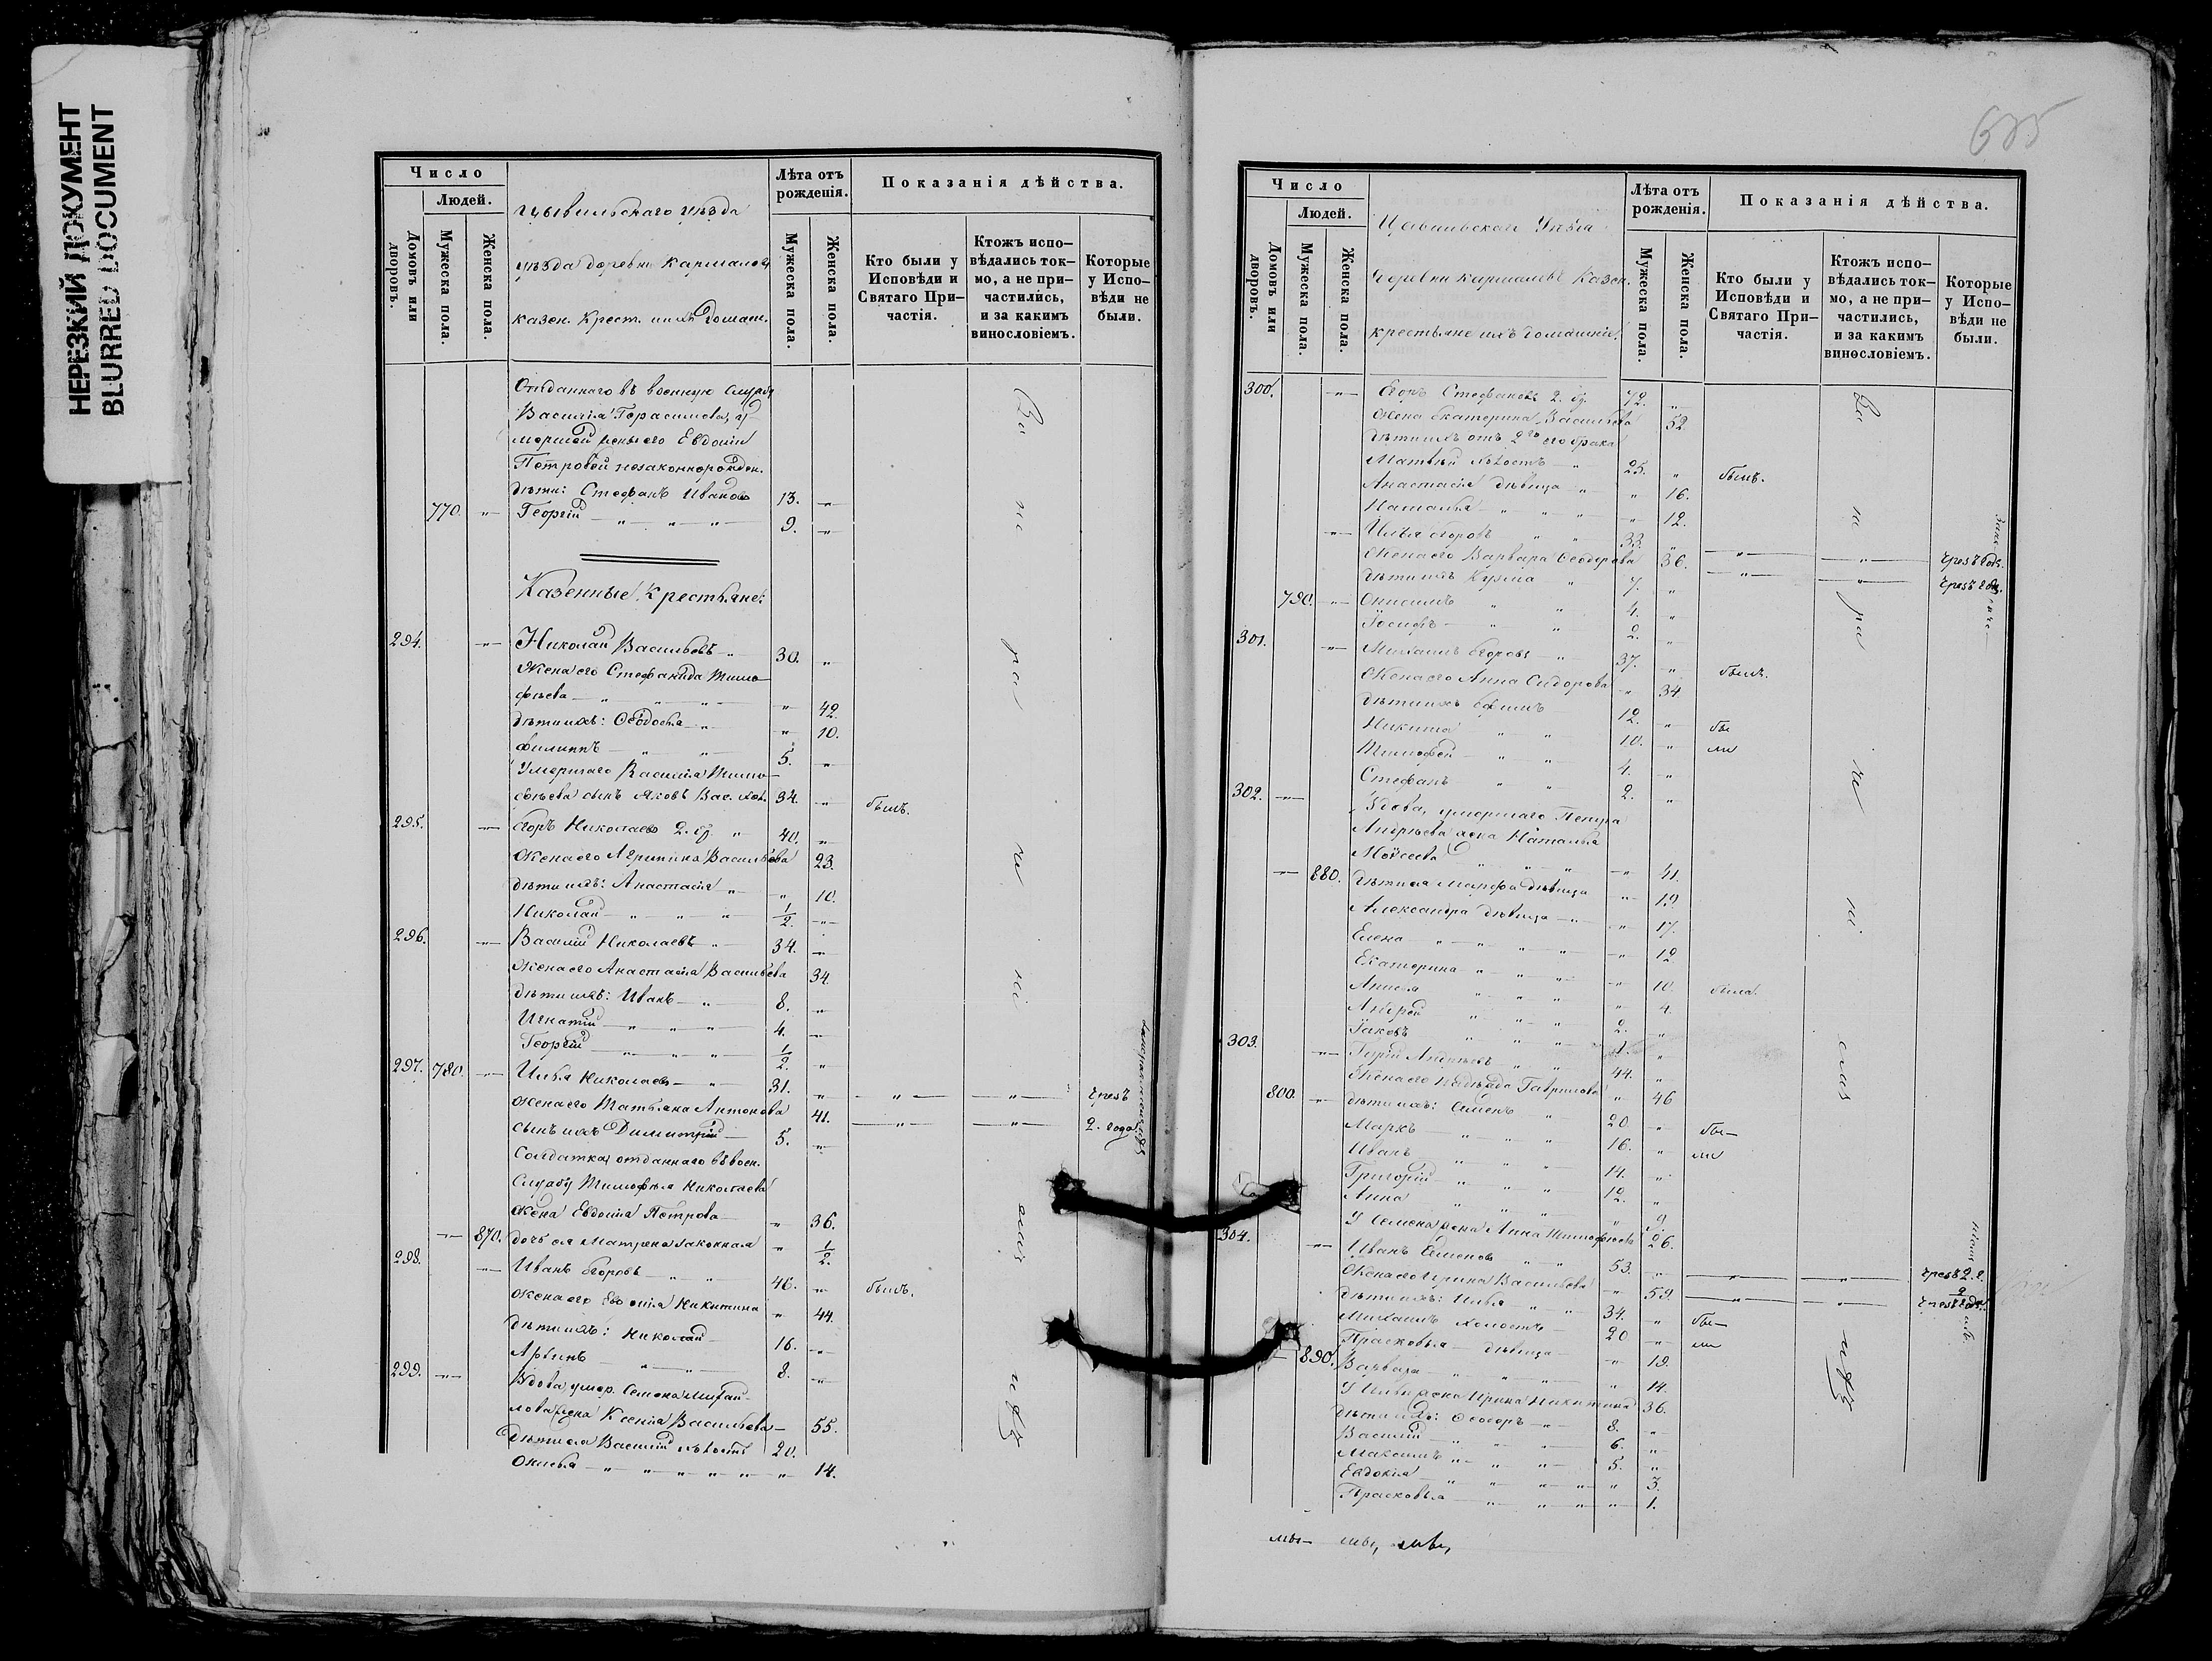 НЕРЕЗКИЙ ДОКУМЕНТ
BLURRED DOCUMENT
Число
Людей.
Домовъ или дворовъ.
Мужеска пола.
Женска пола.
Цывильскаго уѣзда
уѣзда деревни Кармалов
казен. Крест. и ихъ домаш.
Лѣта отъ рожденія.
Мужеска пола.
Женска пола.
Показанія дѣйства.
Кто были у Исповѣди и Святаго При-частія.
Ктожъ испо-вѣдались ток-мо, а не при-частились, и за какимъ винословіемъ.
Которые у Испо-вѣди не были.
Отданнаго въ военную службу
Василія Герасимова, у
мершей жены его Евдокіи
Петровой незаконнорожден.
дѣти: Стефанъ Иванов 13. "
770. " Георгій " " " 9. "
Казенные Крестьяне:
294. " Николай Васильевъ " 30. "
Жена его Стефанида Тимо-
фѣева " " " " 42.
дѣти ихъ: Ѳедосья " " 10.
Филиппъ " " 5. "
Умершаго Василія Тимо-
фѣева сынъ Яковъ Вас. хол. 34. " былъ.
295. " Егоръ Николаевъ 2. бр. " 40. "
Жена его Агрипина Васильева 23.
дѣти ихъ: Анастасія " " 10.
Николай " " " 1/2. "
296. " Василій Николаевъ " 34. "
Жена его Анастасія Васильева 34.
дѣти ихъ: Иванъ " 8. "
Игнатій " " " 4. "
Георгій " " " 1/2. "
297. 780. " Илья Николаевъ " 31. " " " чрезъ
Жена его Татьяна Антонова 41. " " 2. года
сынъ ихъ Димитрій 5. "
Солдатка, отданнаго въ воен.
Службу Тимофѣя Николаева
жена Евдокія Петрова " 36.
" 870. дочь ея Матрена законная " 1/2.
298. " Иванъ Егоровъ " " 46. " былъ.
Жена его Евдокія Никитина " 44.
дѣти ихъ: Николай 16. "
" " 8. "
299. " Вдова умер. Семена Михай-
лова жена Ксенія Васильева 55.
дѣти ея Василій холостъ 20.
" " " " " " 14.
635
Число
Людей.
Домовъ или дворовъ.
Мужеска пола.
Женска пола.
Цывильскаго Уѣзда
деревни Кармаловъ Казен.
крестьяне ихъ домашніе.
Лѣта отъ рожденія.
Мужеска пола.
Женска пола.
Показанія дѣйства.
Кто были у Исповѣди и Святаго При-частія.
Ктожъ испо-вѣдались ток-мо, а не при-частились, и за какимъ винословіемъ.
Которые у Испо-вѣди не были.
300. " Егоръ Стефановъ 2. бр. 72. "
Жена Екатерина Васильева 52.
дѣти ихъ отъ 2го его брака
Матвѣй холостъ " 25. " былъ.
Анастасія дѣвица " " 16.
Наталья " " " " 12.
" Илья Егоровъ " " 33. " " " чрезъ годъ.
Жена его Варвара Ѳеодорова 36. " " чрезъ годъ.
дѣти ихъ Кузма " 7. "
790. " Онисимъ " " 4. "
Іосифъ " " 2. "
301. " Михаилъ Егоровъ " 37. " былъ.
Жена его Анна Сидорова " 34
дѣти ихъ Ефимъ 12. "
Никита " " 10. " бы
Тимофей " " 4. " ли
Стефанъ " " 2. "
302. " Вдова, умершаго Петра
Андрѣева жена Наталья
Моѵсеева " " " " 41.
" 880. дѣти ея Марфа дѣвица " 19.
Александра дѣвица " " 17.
Елена " " " " " 12
Екатерина " " " " 10. была.
" " " " 4.
Андрей " " " 2. "
Іаковъ " " " 1. "
303. " Андреевъ " " 44. "
Жена его Надежда Гаврилова " 46
800. " дѣти ихъ: Семенъ " 20 " бы-
Маркъ " " " 16. " ли
Иванъ " " " 14. "
Григорій " " " 12. "
Анна " " " " 9
У Семена жена Анна Тимофѣева 26.
304. " Иванъ Семеновъ " " 53. " " " чрезъ 2. г.
Жена его Ирина Васильева " 59. " " чрезъ 2 года.
дѣти ихъ: Илья " " 34. " бы-
Михаилъ холостъ 20 " ли
Прасковья дѣвица " 19.
" 890. Варвара " " " " 14.
У Ильи жена Ирина Никитина 36.
дѣти ихъ: Ѳеодоръ " 8. "
Василій " " " 6. "
Максимъ " " " 5. "
Евдокія " " " " 3.
Прасковья " " " " 1.